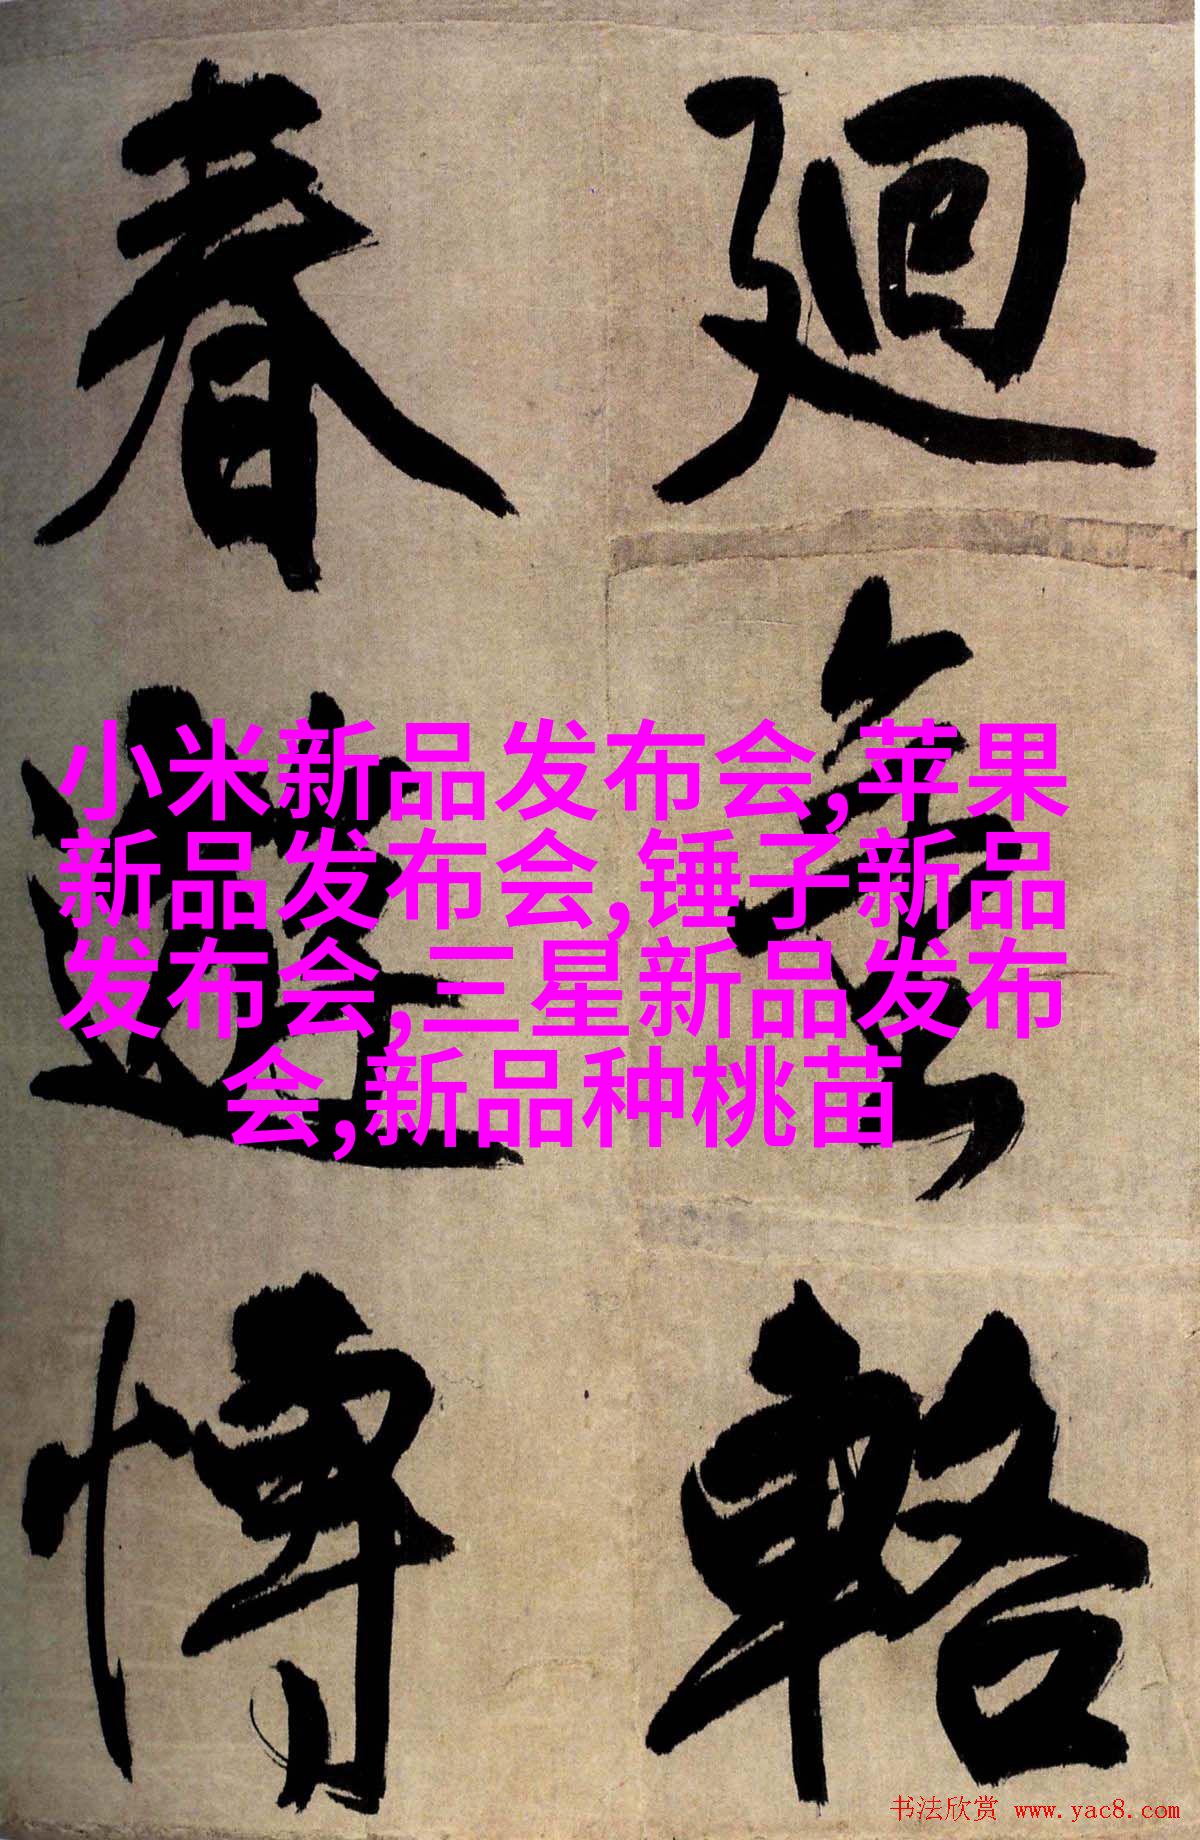 廻無輅
春遊愽
小米新品发布会,苹果
新品发布会,锤子新品
发布会,三星新品发布
会,新品种桃苗
书法欣赏 www.yac8.com